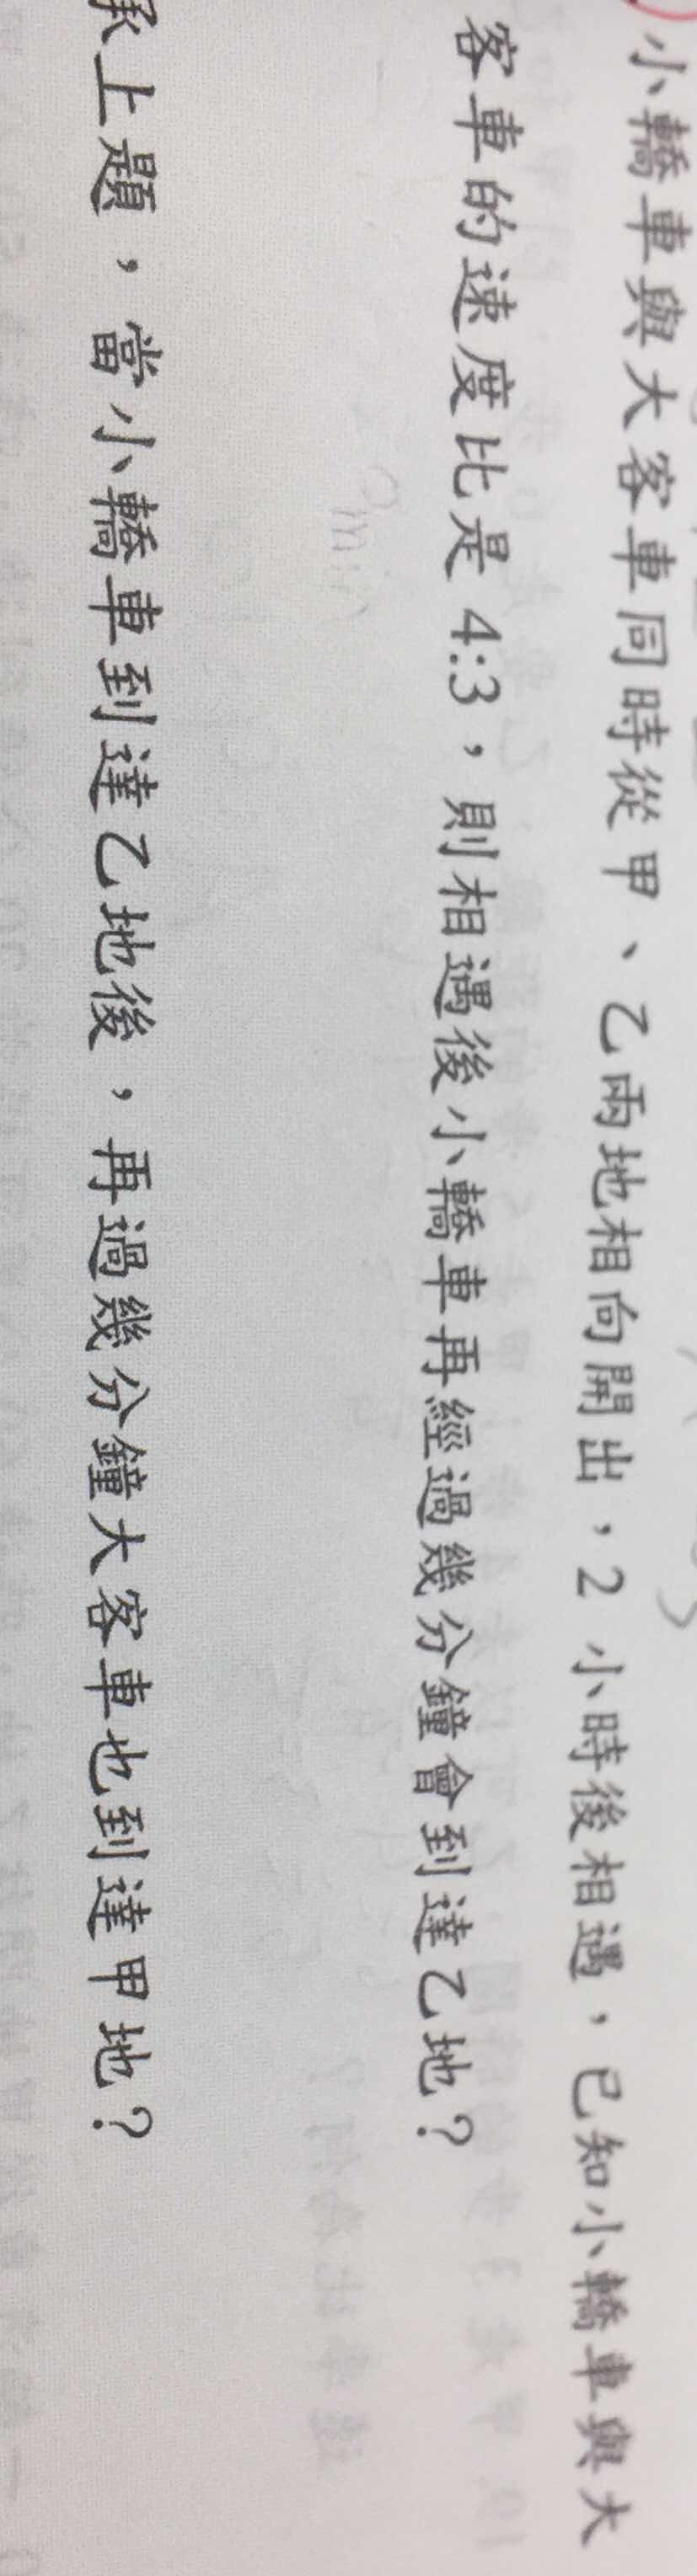 小轎車與大客車同時從甲、乙兩地相向開出，2 小時後相遇，已知小轎車與大
客車的速度比是 4:3，則相遇後小轎車再經過幾分鐘會到達乙地？
承上題，當小轎車到達乙地後，再過幾分鐘大客車也到達甲地？